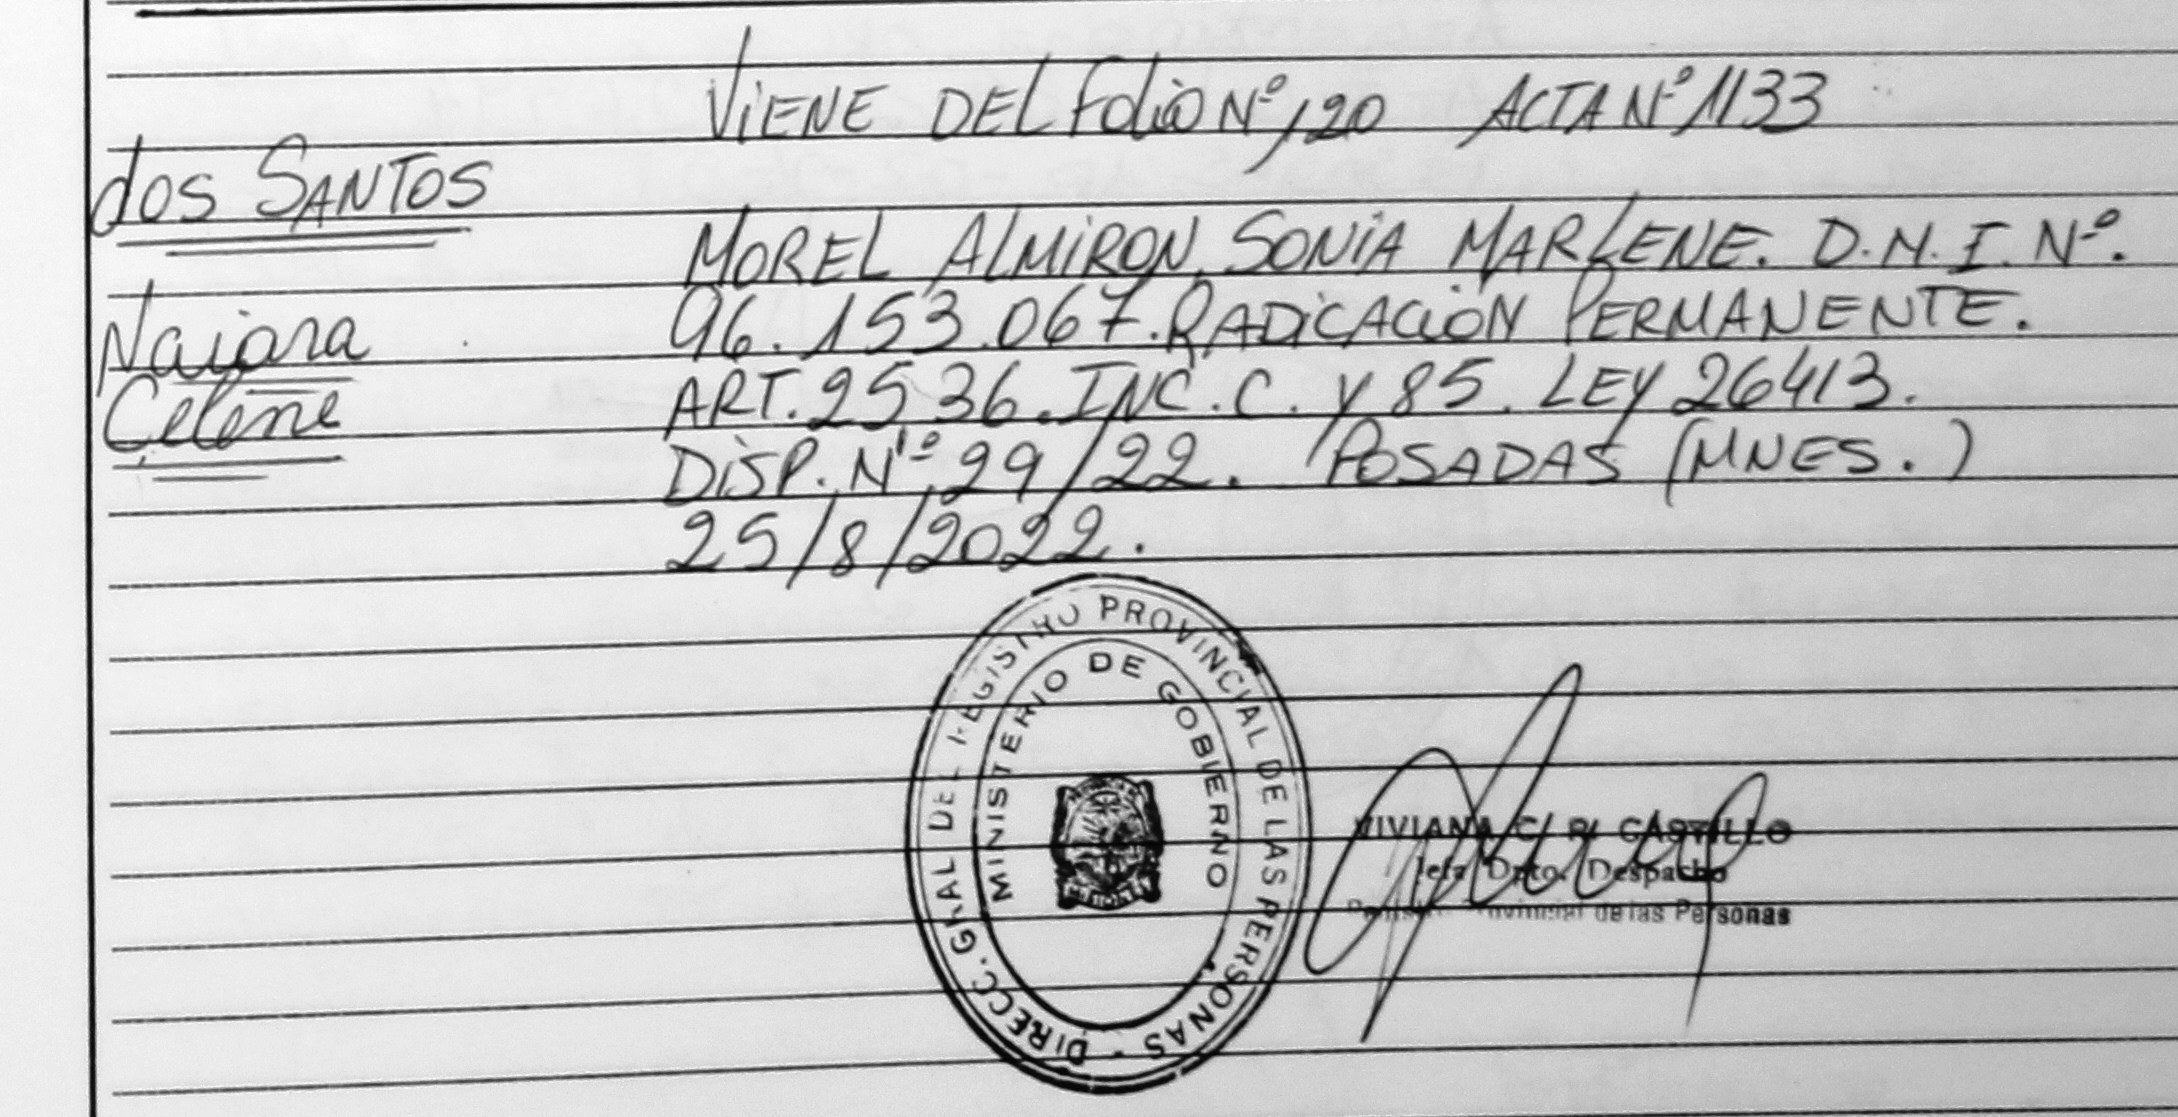 VIENE DEL Folio Nº 120 ACTA Nº 1133
dos SANTOS
Naiara
Celene
MOREL ALMIRON, SONIA MARLENE. D.N.I. Nº.
96.153.067. RADICACIÓN PERMANENTE.
ART. 2536. INC. C. Y 85. LEY 26413.
DISP. Nº 29/22. POSADAS (MNES.)
25/8/2022.
DIRECC. GRAL DEL REGISTRO PROVINCIAL DE LAS PERSONAS -
MINISTERIO DE GOBIERNO
VIVIANA C. R. CASTILLO
Jefa Dpto. Despacho
Provincial de las Personas